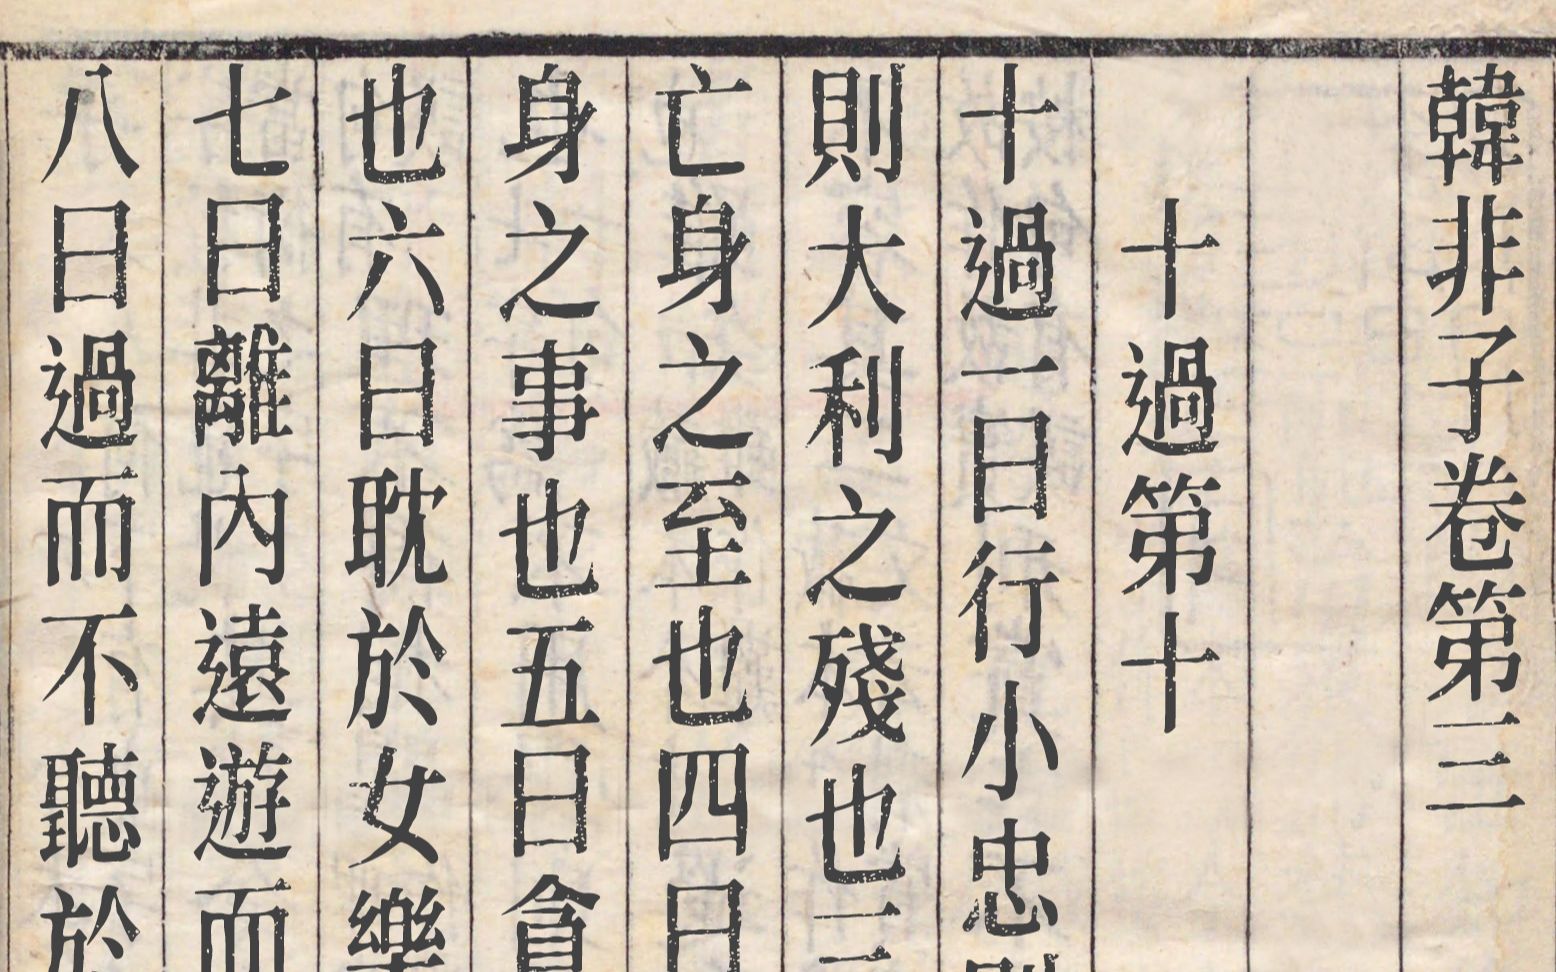 韓非子卷第三
十過第十
十過一曰行小忠則
則大利之殘也三
亡身之至也四曰
身之事也五曰貪
也六曰耽於女樂
七曰離內遠遊而
八曰過而不聽於